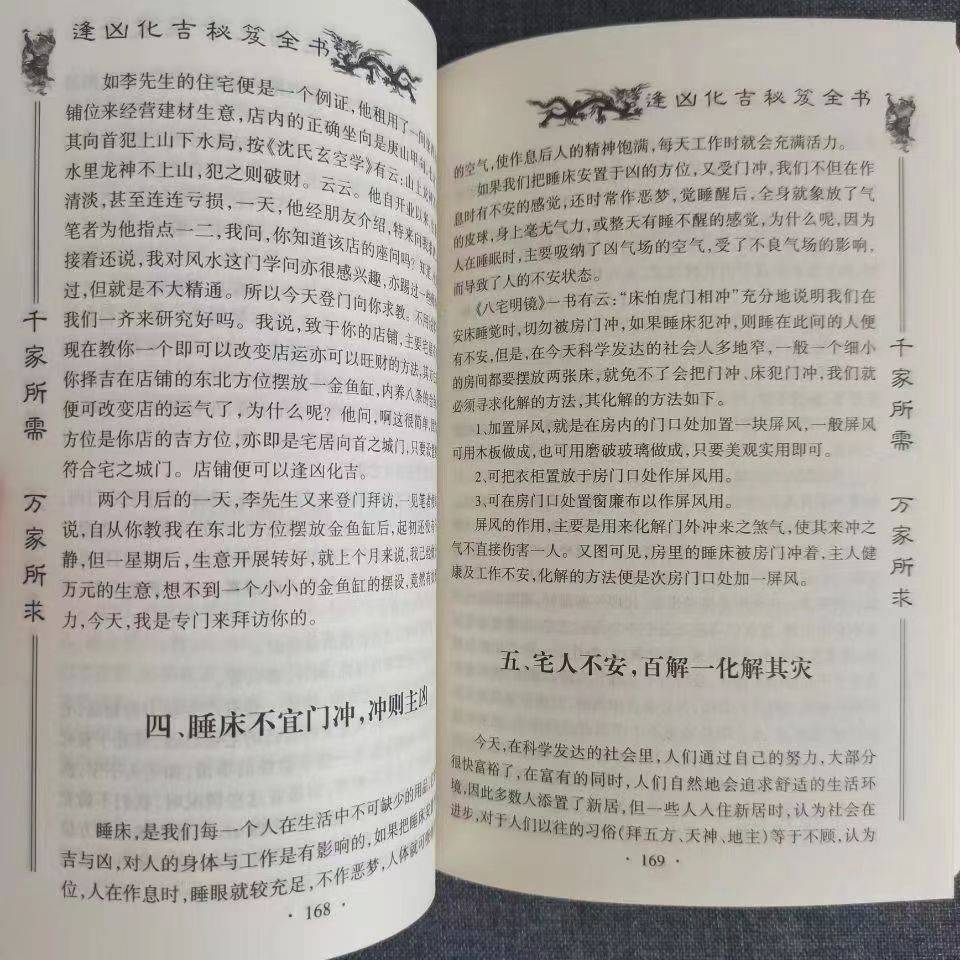 逢凶化吉秘笈全书
如李先生的住宅便是一个例证,他租用了一间
铺位来经营建材生意,店内的正确坐向是庚山甲向,
其向首犯上山下水局,按《沈氏玄空学》有云:山上龙神
水里龙神不上山,犯之则破财。云云。他自开业以来,
清淡,甚至连连亏损,一天,他经朋友介绍,特来问
笔者为他指点一二,我问,你知道该店的座间吗?
接着还说,我对风水这门学问亦很感兴趣,亦踢过一些
过,但就是不大精通。所以今天登门向你求教。
我们一齐来研究好吗。我说,致于你的店铺,主要
现在教你一个即可以改变店运亦可以旺财的方法,其方
你择吉在店铺的东北方位摆放一金鱼缸,内养八条的金
便可改变店的运气了,为什么呢?他问,啊这很简单,
方位是你店的吉方位,亦即是宅居向首之城门,只要
符合宅之城门。店铺便可以逢凶化吉。
两个月后的一天,李先生又来登门拜访,一见笔者
说,自从你教我在东北方位摆放金鱼缸后,起初还
静,但一星期后,生意开展转好,就上个月来说,我已
万元的生意,想不到一个小小的金鱼缸的摆设,竟然有
力,今天,我是专门来拜访你的。
四、睡床不宜门冲,冲则主凶
睡床,是我们每一个人在生活中不可缺少的用品,
吉与凶,对人的身体与工作是有影响的,如果把睡床安
位,人在作息时,睡眼就较充足,不作恶梦,人体就可
· 168 ·
千家所需 万家所求
逢凶化吉秘笈全书
的空气,使作息后人的精神饱满,每天工作时就会充满活力。
如果我们把睡床安置于凶的方位,又受门冲,我们不但在作
息时有不安的感觉,还时常作恶梦,觉睡醒后,全身就象放了气
的皮球,身上毫无气力,或整天有睡不醒的感觉,为什么呢,因为
人在睡眠时,主要吸纳了凶气场的空气,受了不良气场的影响,
而导致了人的不安状态。
《八宅明镜》一书有云:“床怕虎门相冲”充分地说明我们在
安床睡觉时,切勿被房门冲,如果睡床犯冲,则睡在此间的人便
有不安,但是,在今天科学发达的社会人多地窄,一般一个细小
的房间都要摆放两张床,就免不了会把门冲、床犯门冲,我们就
必须寻求化解的方法,其化解的方法如下。
1、加置屏风,就是在房内的门口处加置一块屏风,一般屏风
可用木板做成,也可用磨破玻璃做成,只要美观实用即可。
2、可把衣柜置放于房门口处作屏风用。
3、可在房门口处置窗廉布以作屏风用。
屏风的作用,主要是用来化解门外冲来之煞气,使其来冲之
气不直接伤害一人。又图可见,房里的睡床被房门冲着,主人健
康及工作不安,化解的方法便是次房门口处加一屏风。
五、宅人不安,百解一化解其灾
今天,在科学发达的社会里,人们通过自己的努力,大部分
很快富裕了,在富有的同时,人们自然地会追求舒适的生活环
境,因此多数人添置了新居,但一些人人住新居时,认为社会在
进步,对于人们以往的习俗(拜五方、天神、地主)等于不顾,认为
· 169 ·
千家所需 万家所求